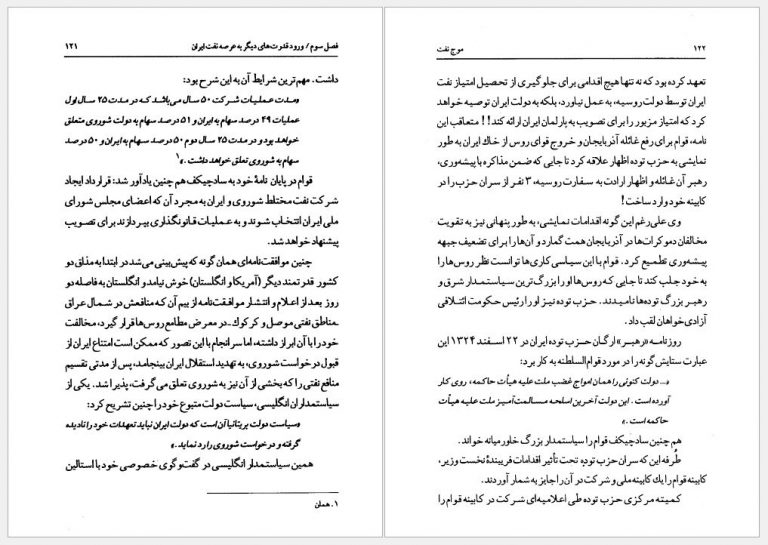 فصل سوم/ ورود قدرت‌های دیگر به عرصه نفت ایران ۱۲۱
داشت. مهم‌ترین شرایط آن به این شرح بود:
«مدت عملیات شرکت ۵۰ سال می‌باشد که در مدت ۲۵ سال اول
عملیات ۴۹ درصد سهام به ایران و ۵۱ درصد سهام به دولت شوروی متعلق
خواهد بود و در مدت ۲۵ سال دوم ۵۰ درصد سهام به ایران و ۵۰ درصد
سهام به شوروی تعلق خواهد داشت.»۱
قوام در پایان نامهٔ خود به سادچیکف هم چنین یادآور شد: قرارداد ایجاد
شرکت نفت مختلط شوروی و ایران به مجرد آن که اعضای مجلس شورای
ملی ایران انتخاب شوند و به عملیات قانونگذاری بپردازند برای تصویب
پیشنهاد خواهد شد.
چنین موافقت‌نامه‌ای همان گونه که پیش‌بینی می‌شد در ابتدا به مذاق دو
کشور قدرتمند دیگر (آمریکا و انگلستان) خوش نیامد و انگلستان به فاصله دو
روز بعد از اعلام و انتشار موافقت‌نامه از بیم آن که منافعش در شمال عراق
ـ مناطق نفتی موصل و کرکوک ـ در معرض مطامع روس‌ها قرار گیرد، مخالفت
خود را با آن ابراز داشته، اما سرانجام با این تصور که ممکن است امتناع ایران از
قبول درخواست شوروی، به تهدید استقلال ایران بینجامد، پس از مدتی تقسیم
منافع نفتی را که بخشی از آن نیز به شوروی تعلق می‌گرفت، پذیرا شد. یکی از
سیاستمداران انگلیسی، سیاست دولت متبوع خود را چنین تشریح کرد:
«سیاست دولت بریتانیا آن است که دولت ایران نباید تعهدات خود را نادیده
گرفته و درخواست شوروی را رد نماید.»
همین سیاستمدار انگلیسی در گفت‌وگوی خصوصی خود با استالین
۱. همان
۱۲۲ موج نفت
تعهد کرده بود که نه تنها هیچ اقدامی برای جلوگیری از تحصیل امتیاز نفت
ایران توسط دولت روسیه، به عمل نیاورد، بلکه به دولت ایران توصیه خواهد
کرد که امتیاز مزبور را برای تصویب به پارلمان ایران ارائه کند!! متعاقب این
نامه، قوام برای رفع غائله آذربایجان و خروج قوای روس از خاک ایران به طور
نمایشی به حزب توده اظهار علاقه کرد تا جایی که ضمن مذاکره با پیشه‌وری،
رهبر آن غائله و اظهار ارادت به سفارت روسیه، ۳ نفر از سران حزب را در
کابینه خود وارد ساخت!
وی علی‌رغم این گونه اقدامات نمایشی، به طور پنهانی نیز به تقویت
مخالفان دموکرات‌ها در آذربایجان همت گمارد و آن‌ها را برای تضعیف جبهه
پیشه‌وری تطمیع کرد. قوام با این سیاسی کاری‌ها توانست نظر روس‌ها را
به خود جلب کند تا جایی که روس‌ها او را بزرگ‌ترین سیاستمدار شرق و
رهبر بزرگ توده‌ها نامیدند. حزب توده نیز او را رئیس حکومت ائتلافی
آزادی‌خواهان لقب داد.
روزنامه «رهبر» ارگان حزب توده ایران در ۲۲ اسفند ۱۳۲۴ این
عبارت ستایش گونه را در مورد قوام‌السلطنه به کار برد:
«... دولت کنونی را همان امواج غضب ملت علیه هیأت حاکمه، روی کار
آورده است. این دولت آخرین اسلحه مسالمت‌آمیز ملت علیه هیأت
حاکمه است.»
هم چنین سادچیکف قوام را سیاستمدار بزرگ خاورمیانه خواند.
طُرفه این که سران حزب توده تحت تأثیر اقدامات فریبندهٔ نخست وزیر،
کابینه قوام را یک کابینه ملی و شرکت در آن را جایز به شمار آوردند.
کمیته مرکزی حزب توده طی اعلامیه‌ای شرکت در کابینه قوام را